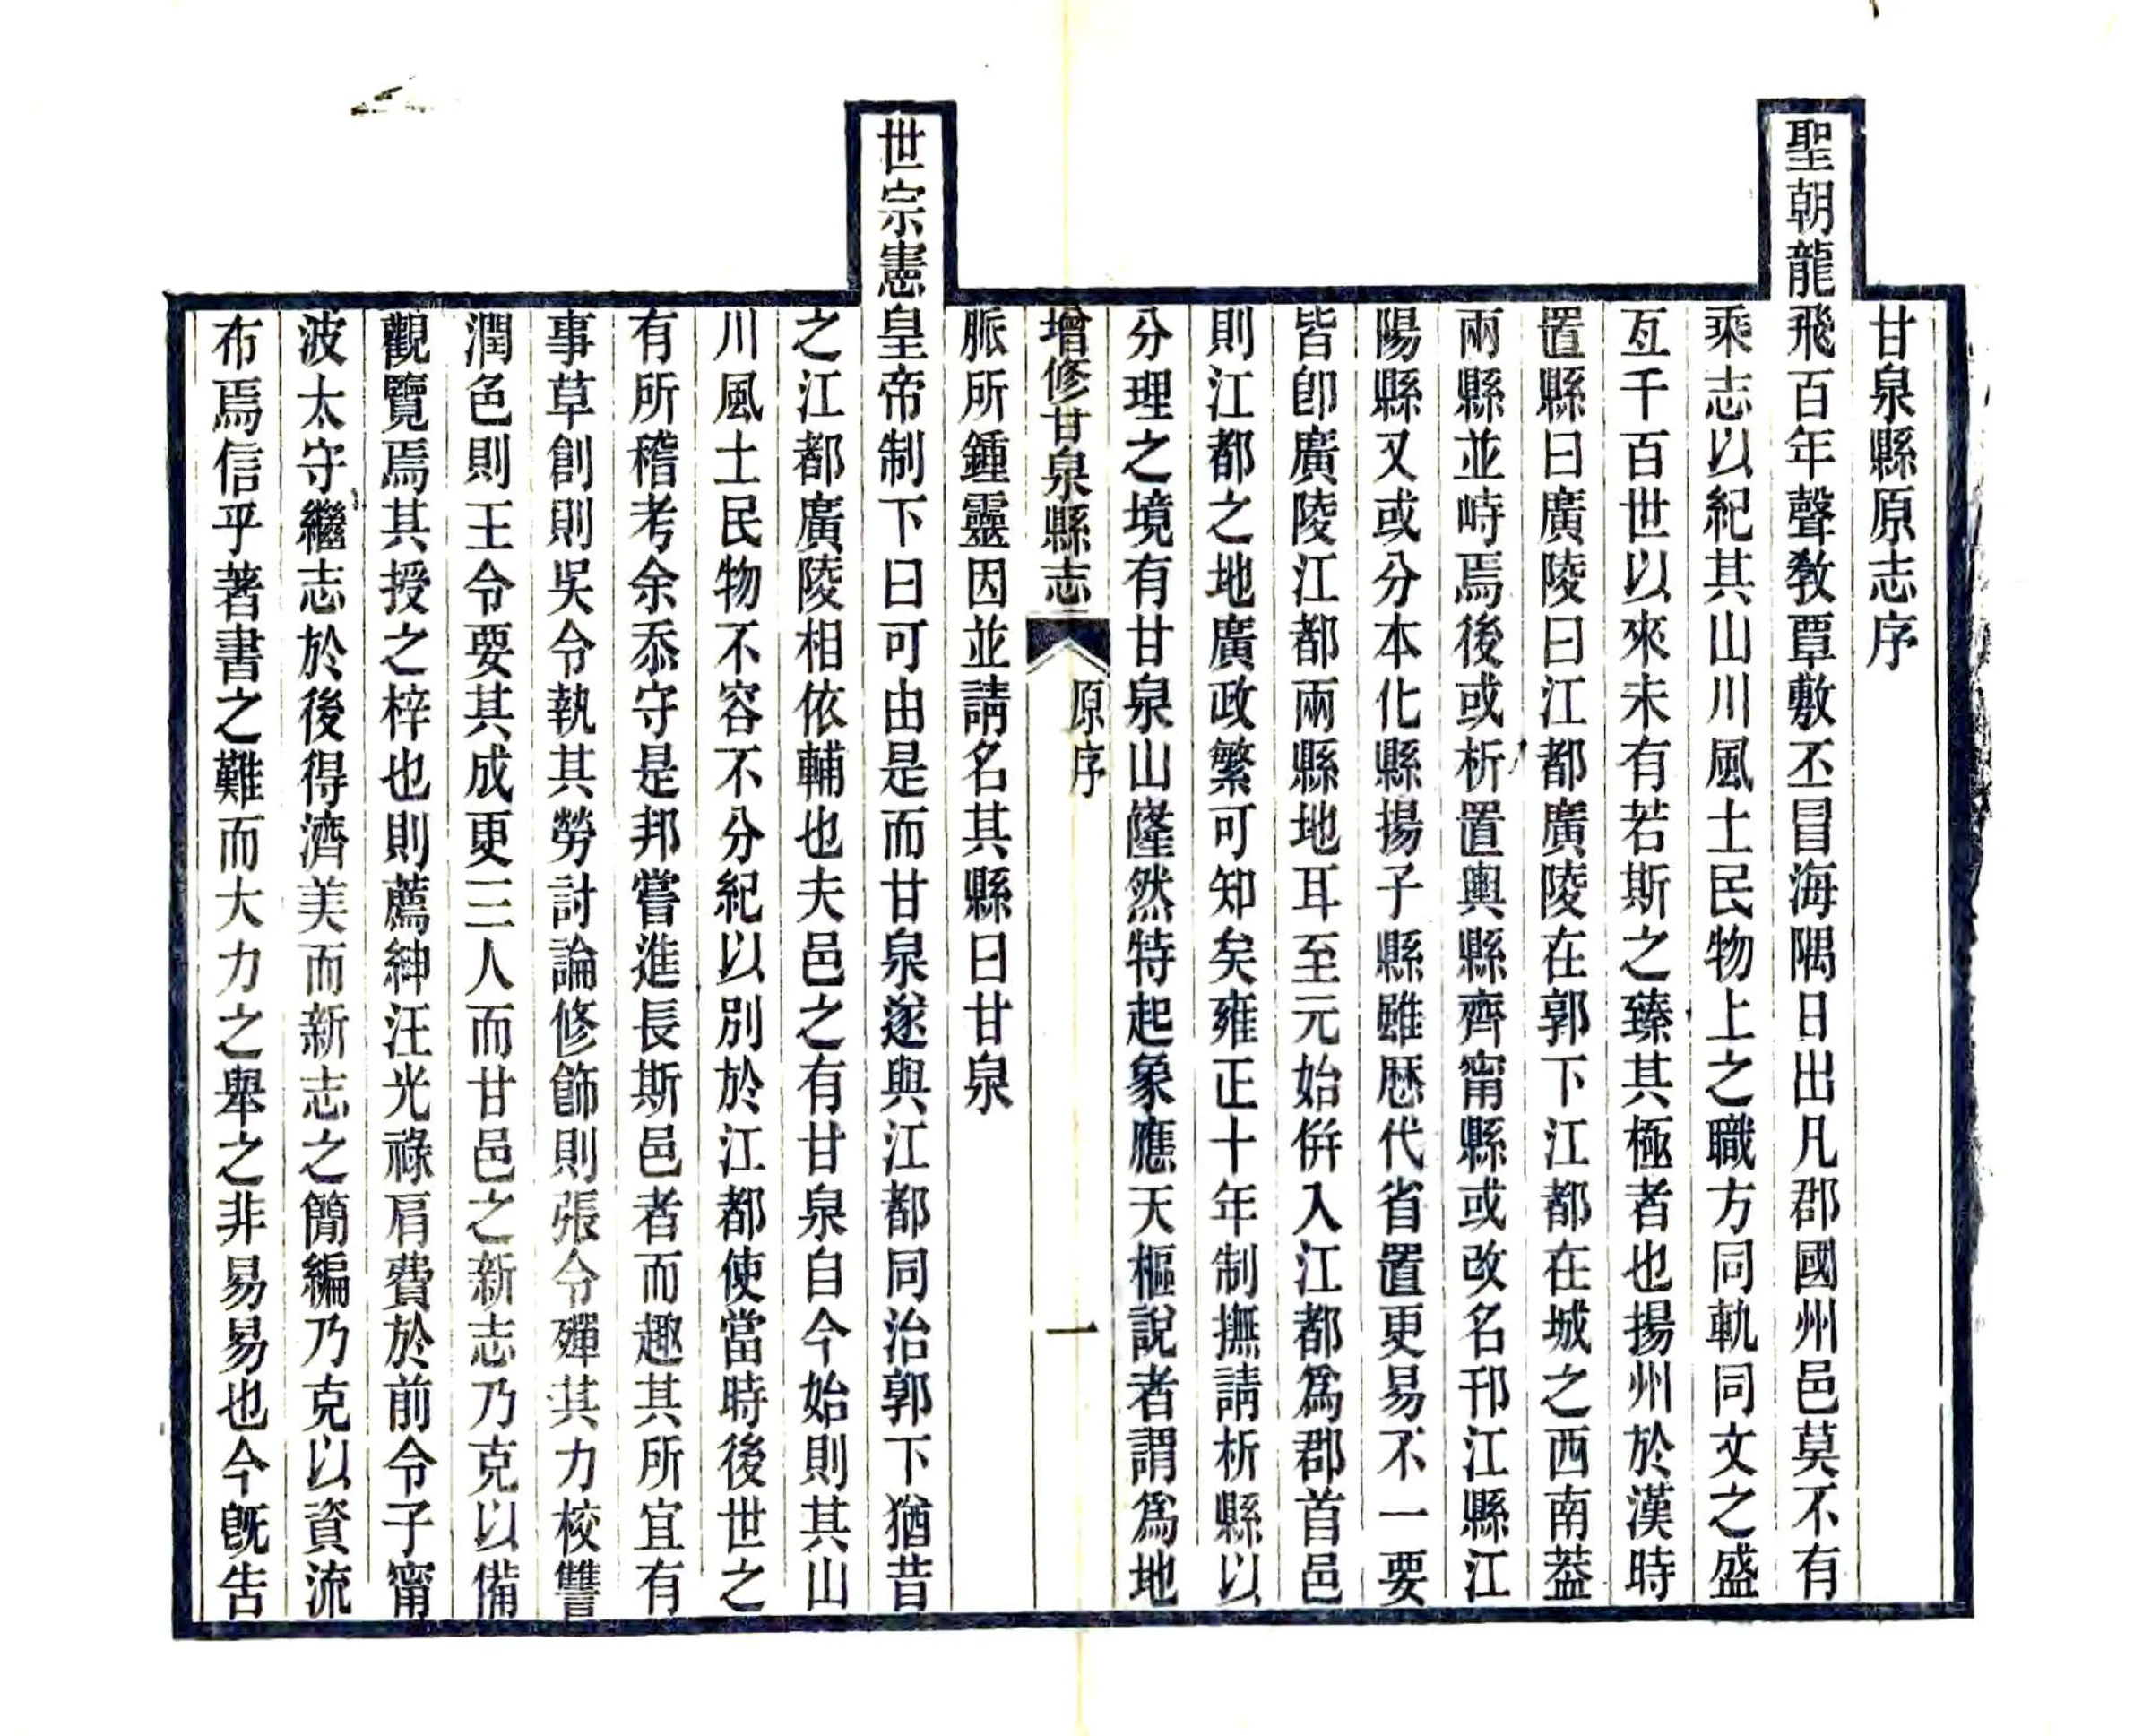 甘泉縣原志序
聖朝龍飛百年聲敎覃敷丕冒海隅日出凡郡國州邑莫不有
乘志以紀其山川風土民物上之職方同軌同文之盛
亙千百世以來未有若斯之臻其極者也揚州於漢時
置縣曰廣陵曰江都廣陵在郭下江都在城之西南葢
兩縣並峙焉後或析置輿縣齊甯縣或改名邗江縣江
陽縣又或分本化縣揚子縣雖歴代省置更易不一要
皆卽廣陵江都兩縣地耳至元始倂入江都爲郡首邑
則江都之地廣政繁可知矣雍正十年制撫請析縣以
分理之境有甘泉山嶐然特起象應天樞說者謂爲地
增修甘泉縣志
原序
一
脈所鍾靈因並請名其縣曰甘泉
世宗憲皇帝制下曰可由是而甘泉遂與江都同治郭下猶昔
之江都廣陵相依輔也夫邑之有甘泉自今始則其山
川風土民物不容不分紀以別於江都使當時後世之
有所稽考余忝守是邦嘗進長斯邑者而趣其所宜有
事草創則吳令執其勞討論修飾則張令殫其力校讐
潤色則王令要其成更三人而甘邑之新志乃克以備
觀覽焉其授之梓也則薦紳汪光祿肩費於前令子甯
波太守繼志於後得濟美而新志之簡編乃克以資流
布焉信乎著書之難而大力之舉之非易易也今旣告